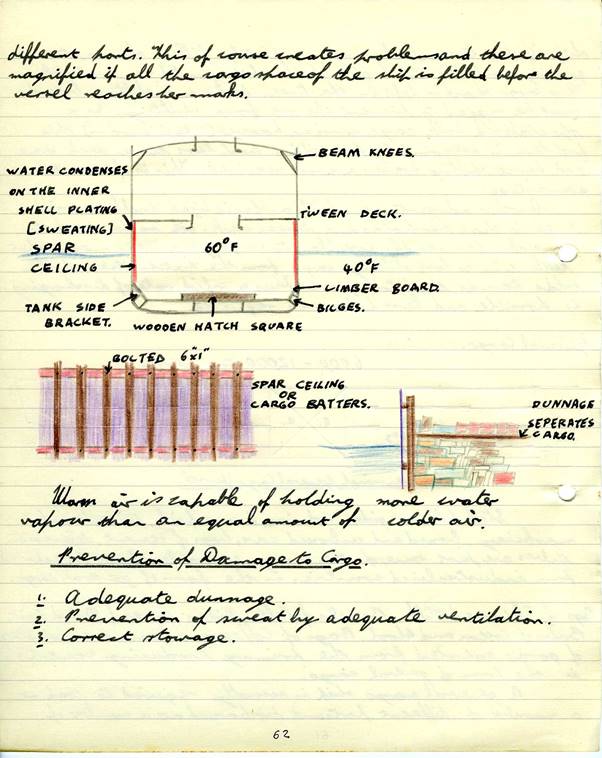 different ports. This of course creates problems and these are
magnified if all the cargo space of the ship is filled before the
vessel reaches her marks.
BEAM KNEES.
WATER CONDENSES
ON THE INNER
SHELL PLATING
[SWEATING]
SPAR
CEILING
TWEEN DECK.
60°F
40°F
LIMBER BOARD.
BILGES.
TANK SIDE
BRACKET.
WOODEN HATCH SQUARE
BOLTED 6"x1"
SPAR CEILING
OR
CARGO BATTERS.
DUNNAGE
SEPERATES
CARGO.
Warm air is capable of holding more water
vapour than an equal amount of colder air.
Prevention of Damage to Cargo.
1. Adequate dunnage.
2. Prevention of sweat by adequate ventilation.
3. Correct stowage.
62